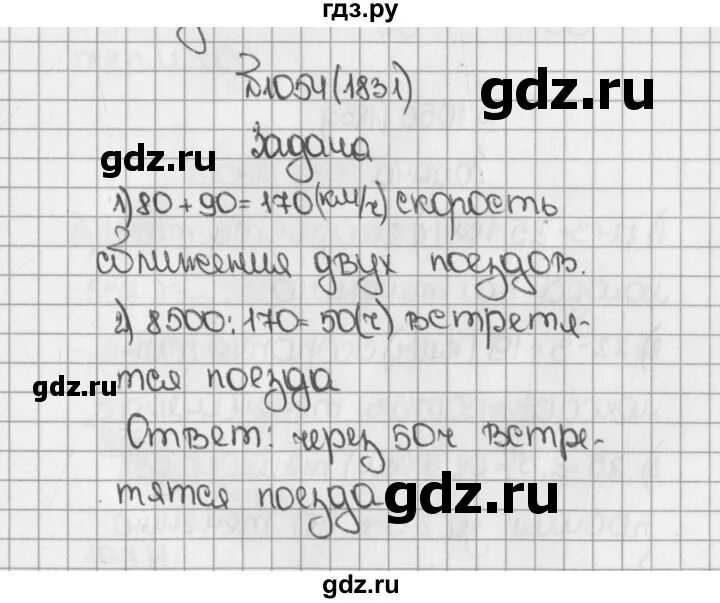 гдз.ру
№1054(1831)
Задача
gdz.ru
gdz.ru
1) 80+90=170(км/ч) скорость
сближения двух поездов.
2) 8500:170=50(ч) встретя-
gdz.ru
тся поезда
Ответ: через 50ч встре-
тятся поезда
gdz.ru
gdz.ru